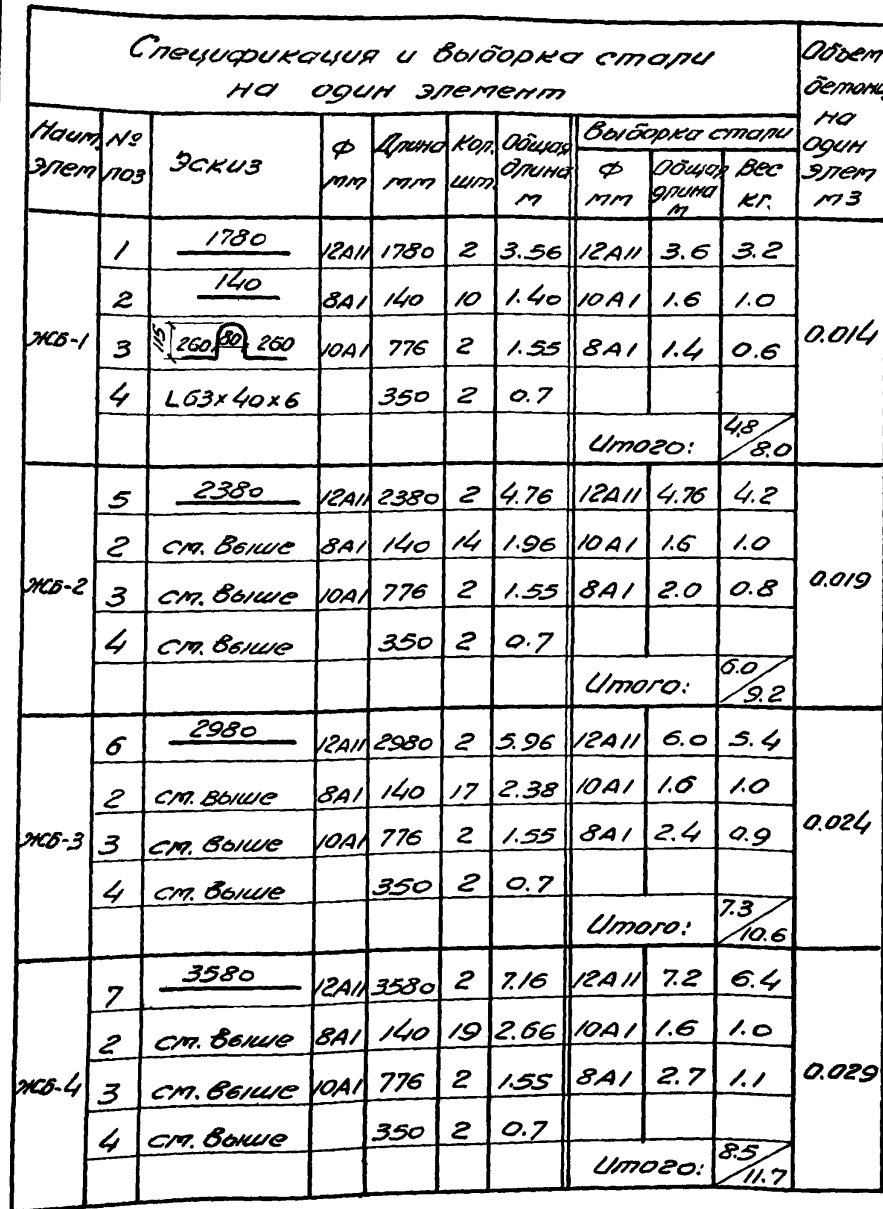 Спецификация и выборка стали
на один элемент
Объем
бетона
на
один
элем
м3
Наим. элем № поз Эскиз Ф мм Длина мм Кол. шт. Общая длина м
Выборка стали
Ф мм Общая длина м Вес кг.
ЖБ-1
1 1780 12АII 1780 2 3.56 12АII 3.6 3.2
2 140 8АI 140 10 1.40 10АI 1.6 1.0
3 115 260 80 260 10АI 776 2 1.55 8АI 1.4 0.6
4 L63×40×6 350 2 0.7
Итого: 4.8/8.0
0.014
ЖБ-2
5 2380 12АII 2380 2 4.76 12АII 4.76 4.2
2 см. выше 8АI 140 14 1.96 10АI 1.6 1.0
3 см. выше 10АI 776 2 1.55 8АI 2.0 0.8
4 см. выше 350 2 0.7
Итого: 6.0/9.2
0.019
ЖБ-3
6 2980 12АII 2980 2 5.96 12АII 6.0 5.4
2 см. выше 8АI 140 17 2.38 10АI 1.6 1.0
3 см. выше 10АI 776 2 1.55 8АI 2.4 0.9
4 см. выше 350 2 0.7
Итого: 7.3/10.6
0.024
ЖБ-4
7 3580 12АII 3580 2 7.16 12АII 7.2 6.4
2 см. выше 8АI 140 19 2.66 10АI 1.6 1.0
3 см. выше 10АI 776 2 1.55 8АI 2.7 1.1
4 см. выше 350 2 0.7
Итого: 8.5/11.7
0.029